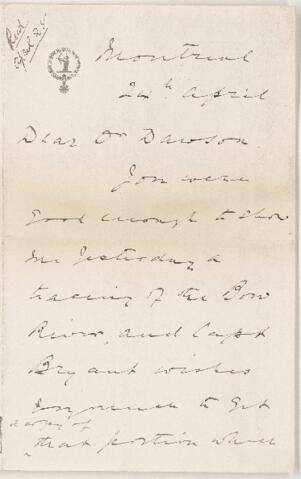 Recd
Montreal
24th April
Dear Dr Dawson
You were
good enough to show
me yesterday a
tracing of the Bow
River, and Capt
Bryant wishes
very much to get
a copy of
that portion where